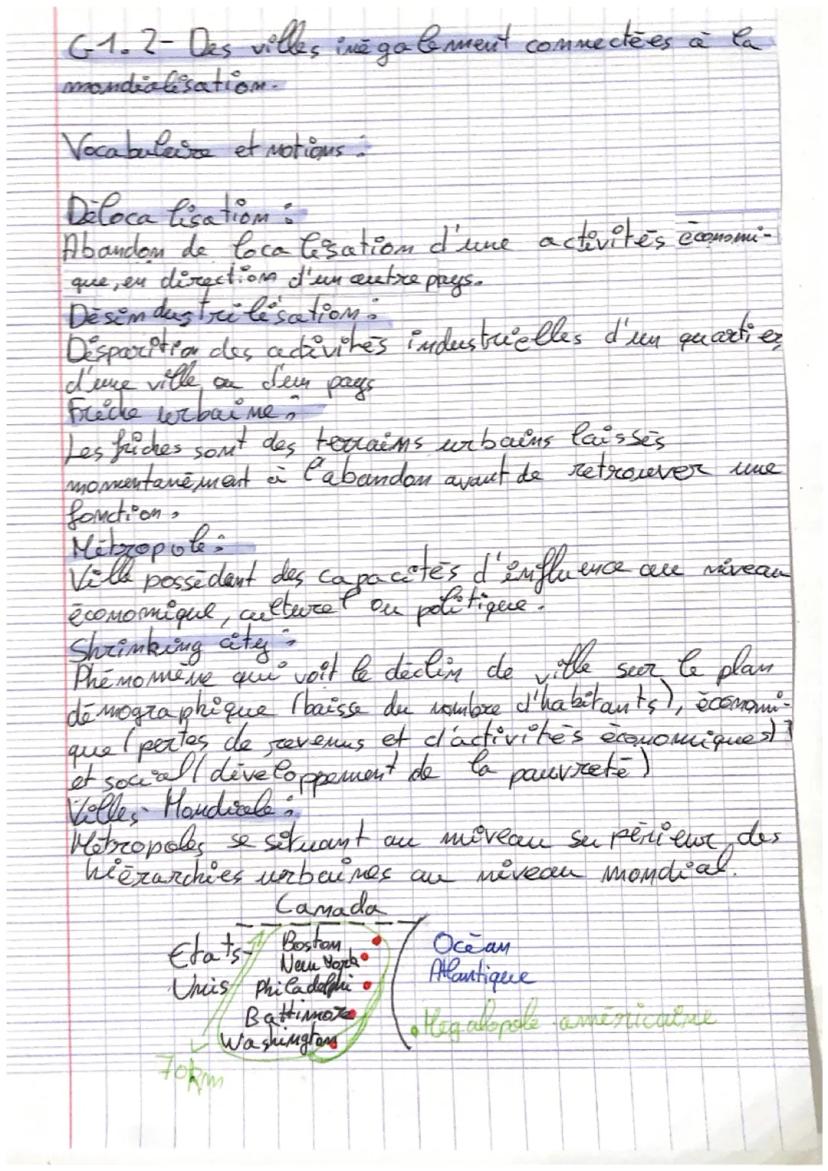 G1.2- Des villes inégalement connectées à la
mondialisation.
Vocabulaire et notions :
Délocalisation :
Abandon de localisation d'une activités économi-
que, en direction d'un autre pays.
Désindustrilisation :
Disparition des activités industrielles d'un quartier
d'une ville ou d'un pays
Friche urbaine :
Les friches sont des terrains urbains laissés
momentanément à l'abandon avant de retrouver une
fonction.
Métropole :
Ville possédant des capacités d'influence au niveau
économique, culturel ou politique.
Shrinking city :
Phénomène qui voit le déclin de ville sur le plan
démographique (baisse du nombre d'habitants), économi-
que (pertes de revenus et d'activités économiques)
et social (développement de la pauvreté)
Villes-Mondiale :
Métropoles se situant au niveau supérieur des
hiérarchies urbaines au niveau mondial.
Canada
Etats-
Unis
Boston
New York
Philadelphi
Baltimore
Washington
Océan
Atlantique
Mégalopole américaine
70km